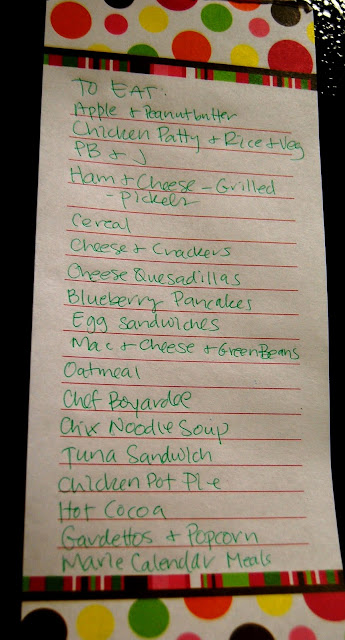 TO EAT:
Apple + Peanutbutter
Chicken Patty + Rice + Veg
PB + J
Ham + Cheese - Grilled
- pickels
Cereal
Cheese + Crackers
Cheese Quesadillas
Blueberry Pancakes
Egg Sandwiches
Mac + Cheese + GreenBeans
Oatmeal
Chef Boyardee
Chix Noodle Soup
Tuna Sandwich
Chicken Pot Pie
Hot Cocoa
Gardettos + Popcorn
Marie Calendar Meals